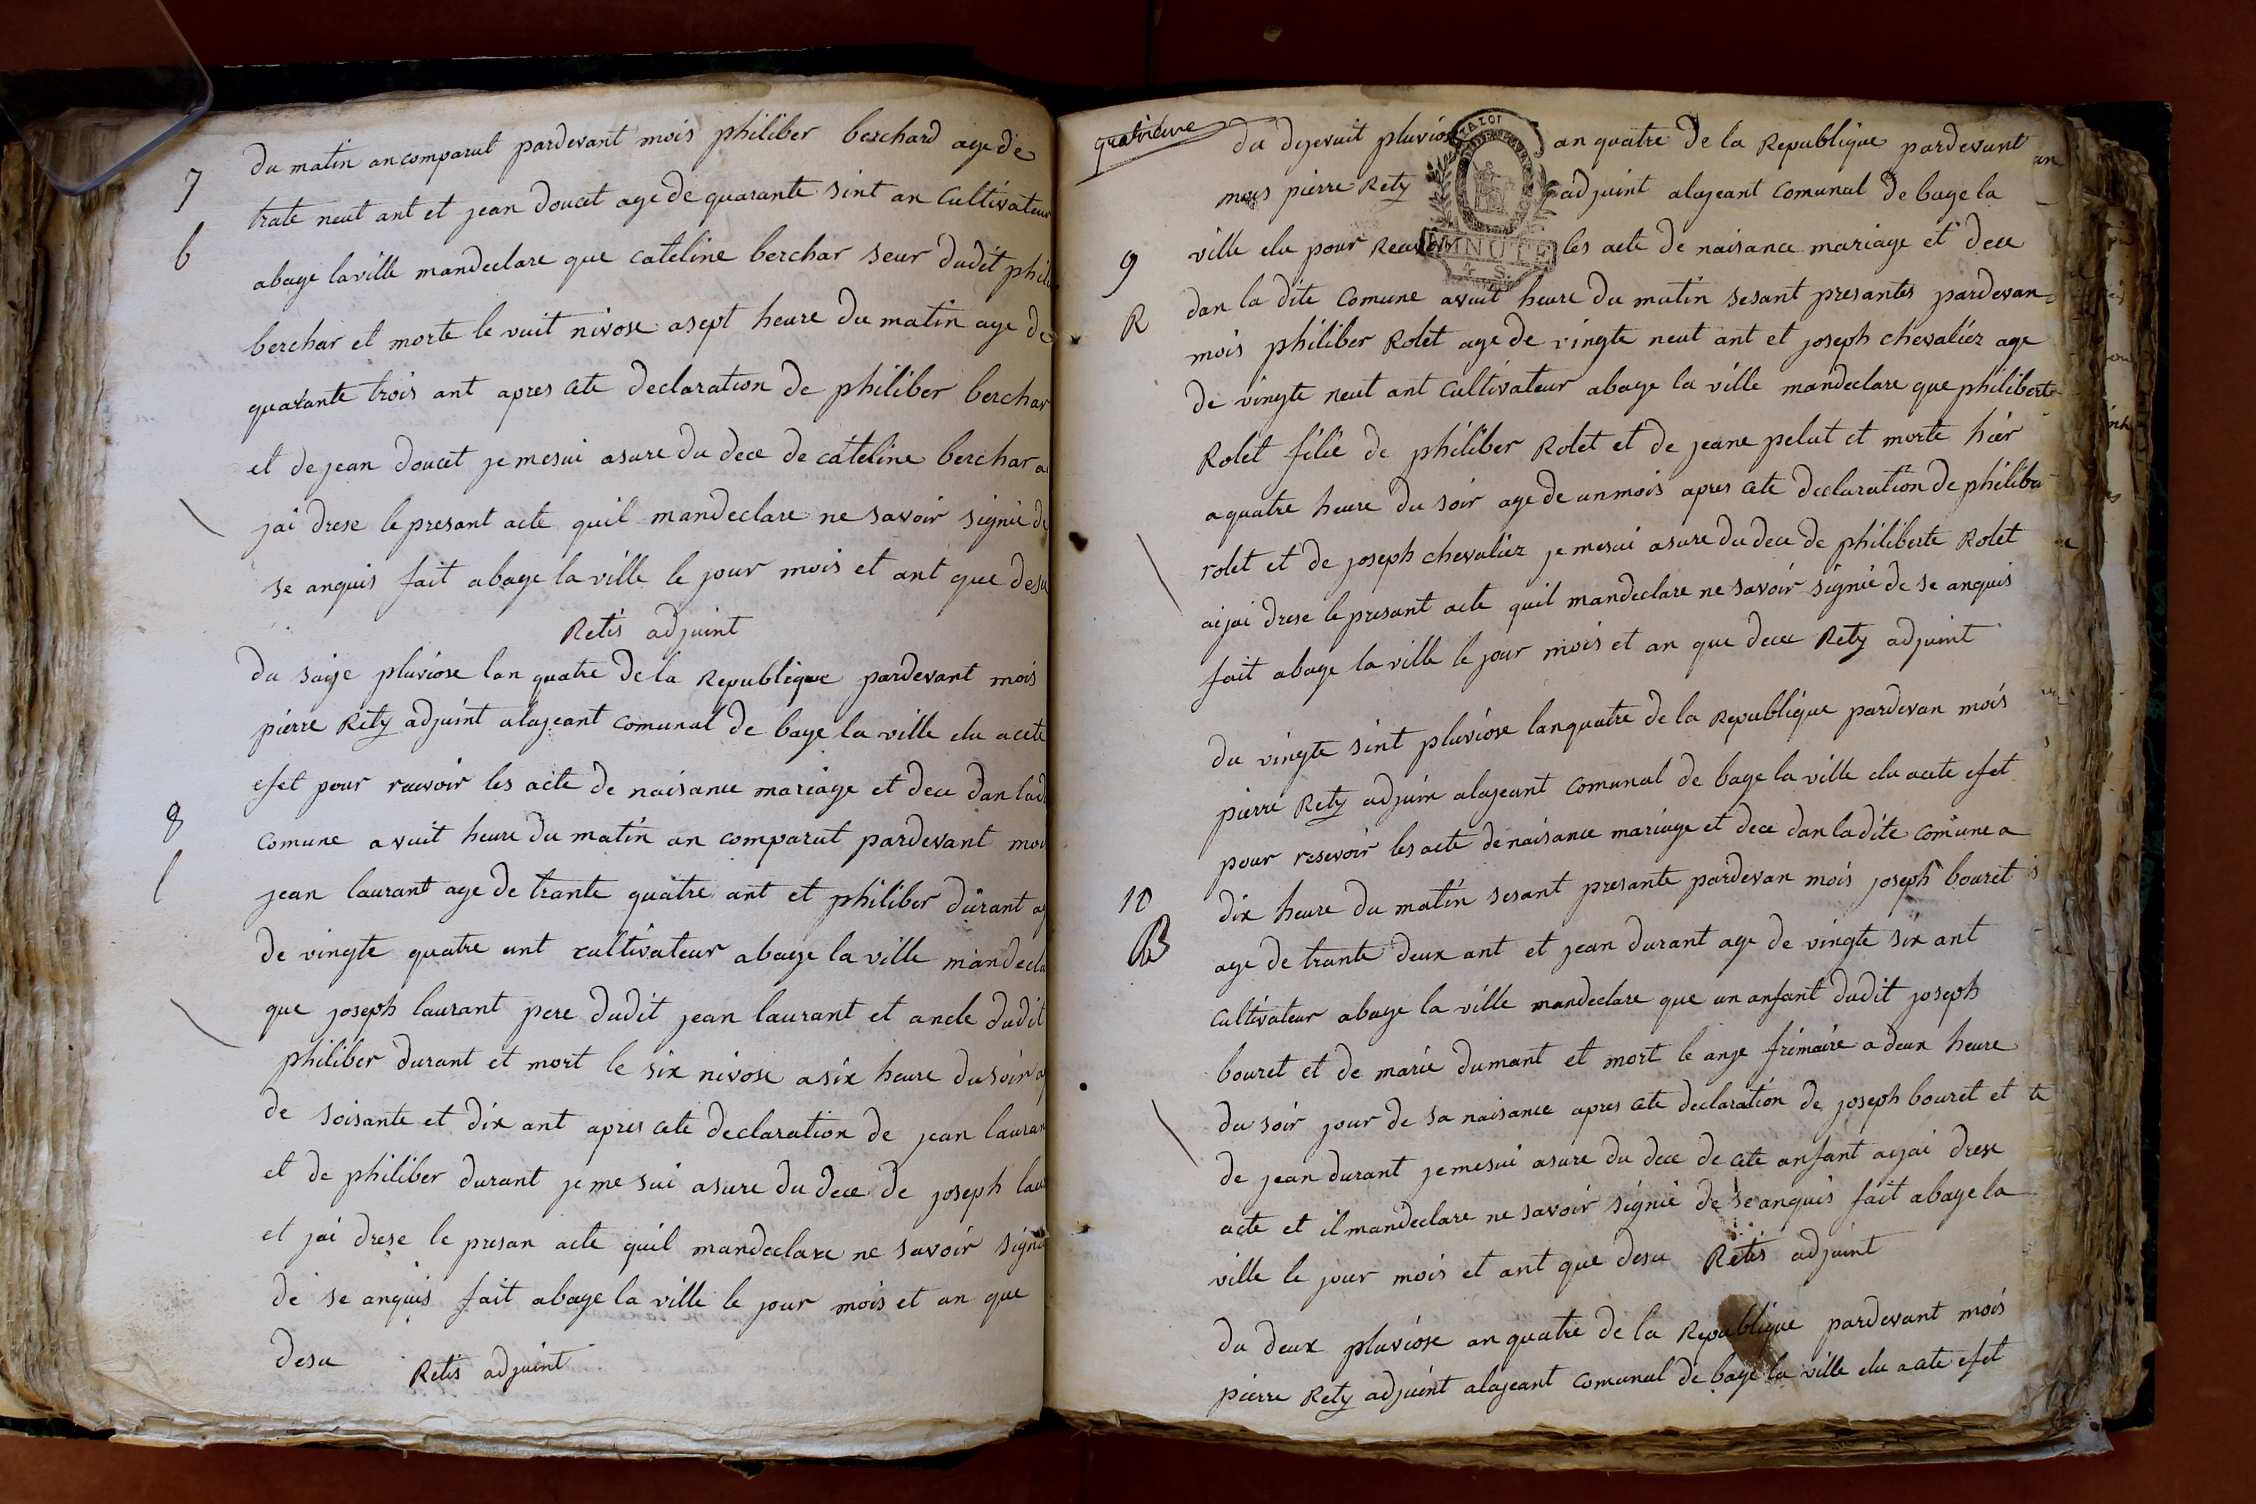 du matin ancomparut pardevant mois philiber berchard age de
7
trate neut ant et jean doucet age de quarante sint an Cultivateur
b
abage laville mandeclare que cateline berchar seur dudit phili
berchar et morte le vuit nivose asept heure du matin age de
quarante trois ant apres cete declaration de philiber berchar
et de jean doucet je mesui asure du dece de cateline berchar a
jai drese le presant acte quil mandeclare ne savoir signie de
se anquis fait abage la ville le jour mois et ant que desu
Retis adjuint
du saije pluviose lan quatre de la Republique pardevant mois
pierre Rety adjuint alajeant comunal de bage la ville elu acete
efet pour recevoir les acte de naisance mariage et dece dan lad
8
comune a vuit heure du matin an comparut pardevant moi
l
jean laurant age de trante quatre ant et philiber durant a
de vingte quatre ant cultivateur abage la ville mandecla
que joseph laurant pere dudit jean laurant et ancle dudit
philiber durant et mort le six nivose a six heure du soir a
de soisante et dix ant apres cete declaration de jean lauran
et de philiber durant je me sui asure du dece de joseph lau
et jai drese le presan acte quil mandeclare ne savoir signi
de se anquis fait abage la ville le jour mois et an que
desu Retis adjuint
quatrieme
du dijevuit pluviose an quatre de la Republique pardevant
mois pierre Rety adjuint alajeant comunal de bage la
MINUTE
4 S.
ville elu pour Recevoir les acte de naisance mariage et dece
9
dan la dite comune avuit heure du matin sesant presantes pardevan
R
mois philiber Rolet age de vingte neut ant et joseph chevaliez age
de vingte neut ant cultivateur abage la ville mandeclare que philiberte
Rolet filie de philiber Rolet et de jeane pelut et morte hier
a quatre heure du soir age de un mois apres cete declaration de philibe
rolet et de joseph chevaliez je mesui asure du dece de philiberte Rolet
aijai drese le presant acte quil mandeclare ne savoir signié de se anquis
fait abage la ville le jour mois et an que dece Rety adjuint
du vingte sint pluviose lanquatre de la Republique pardevan mois
pierre Rety adjuin alajeant comunal de bage la ville elu acete efet
pour resevoir les acte de naisance mariage et dece dan la dite comune a
10
dix heure du matin sesant presante pardevan mois joseph bouret
B
age de trante deux ant et jean durant age de vingte six ant
cultivateur abage la ville mandeclare que un anfant dudit joseph
bouret et de marie dumant et mort le anze frimaire a deux heure
du soir jour de sa naisance apres cete declaration de joseph bouret et
de jean durant je mesui asure du dece de cete anfant aijai drese
acte et il mandeclare ne savoir signié de se anquis fait abage la
ville le jour mois et ant que desu Retis adjuint
du deux pluviose an quatre de la Republique pardevant mois
pierre Rety adjuint alajeant comunal de bage la ville elu acete efet